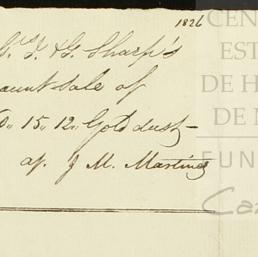 1826
G. T. & G. Sharp's
aunt sale of
15,, 12,, Gold dust -
ap. J M. Martinez
CEN
EST
DE H
DE M
FUN
Ca